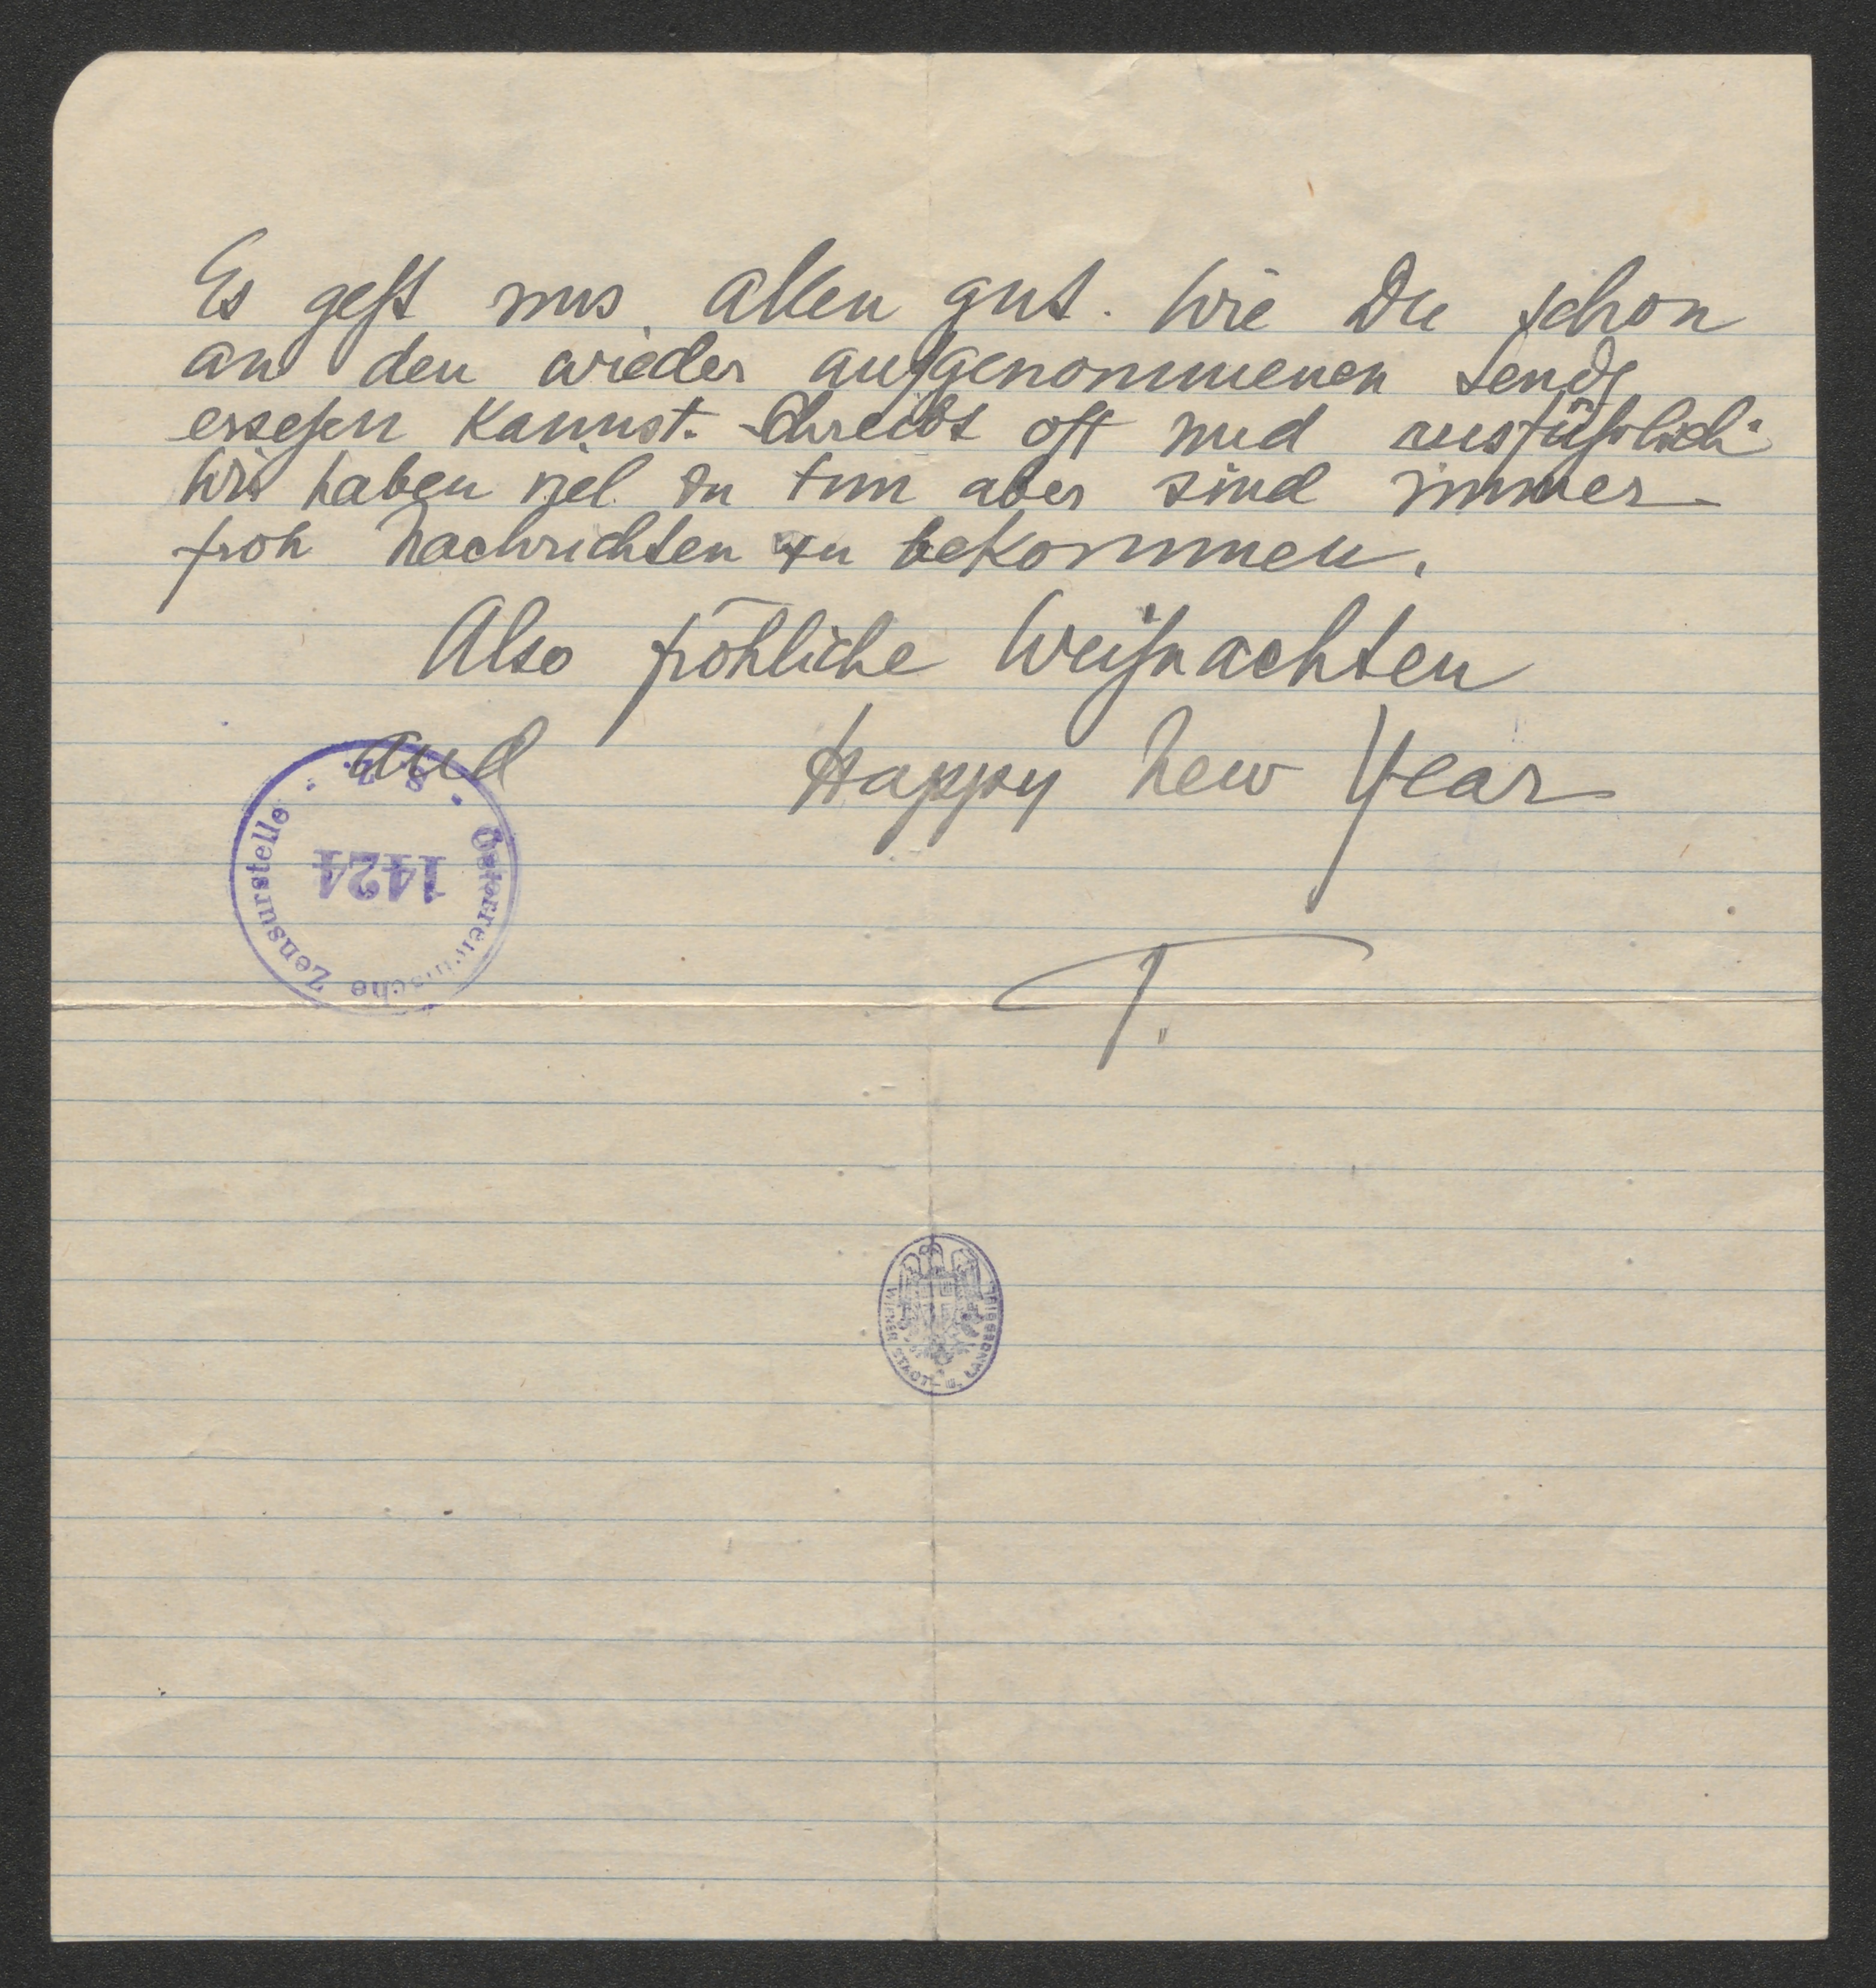 Es geht uns allen gut. Wie Du schon
an den wieder aufgenommenen Sendg
ersehen kannst. Schreibt oft und ausführlich.
Wir haben viel zu tun aber sind immer
froh Nachrichten zu bekommen.
Also fröhliche Weihnachten
und Happy New Year
T.
Österreichische Zensurstelle
1424
WIENER STADT- U. LANDESBIBL.